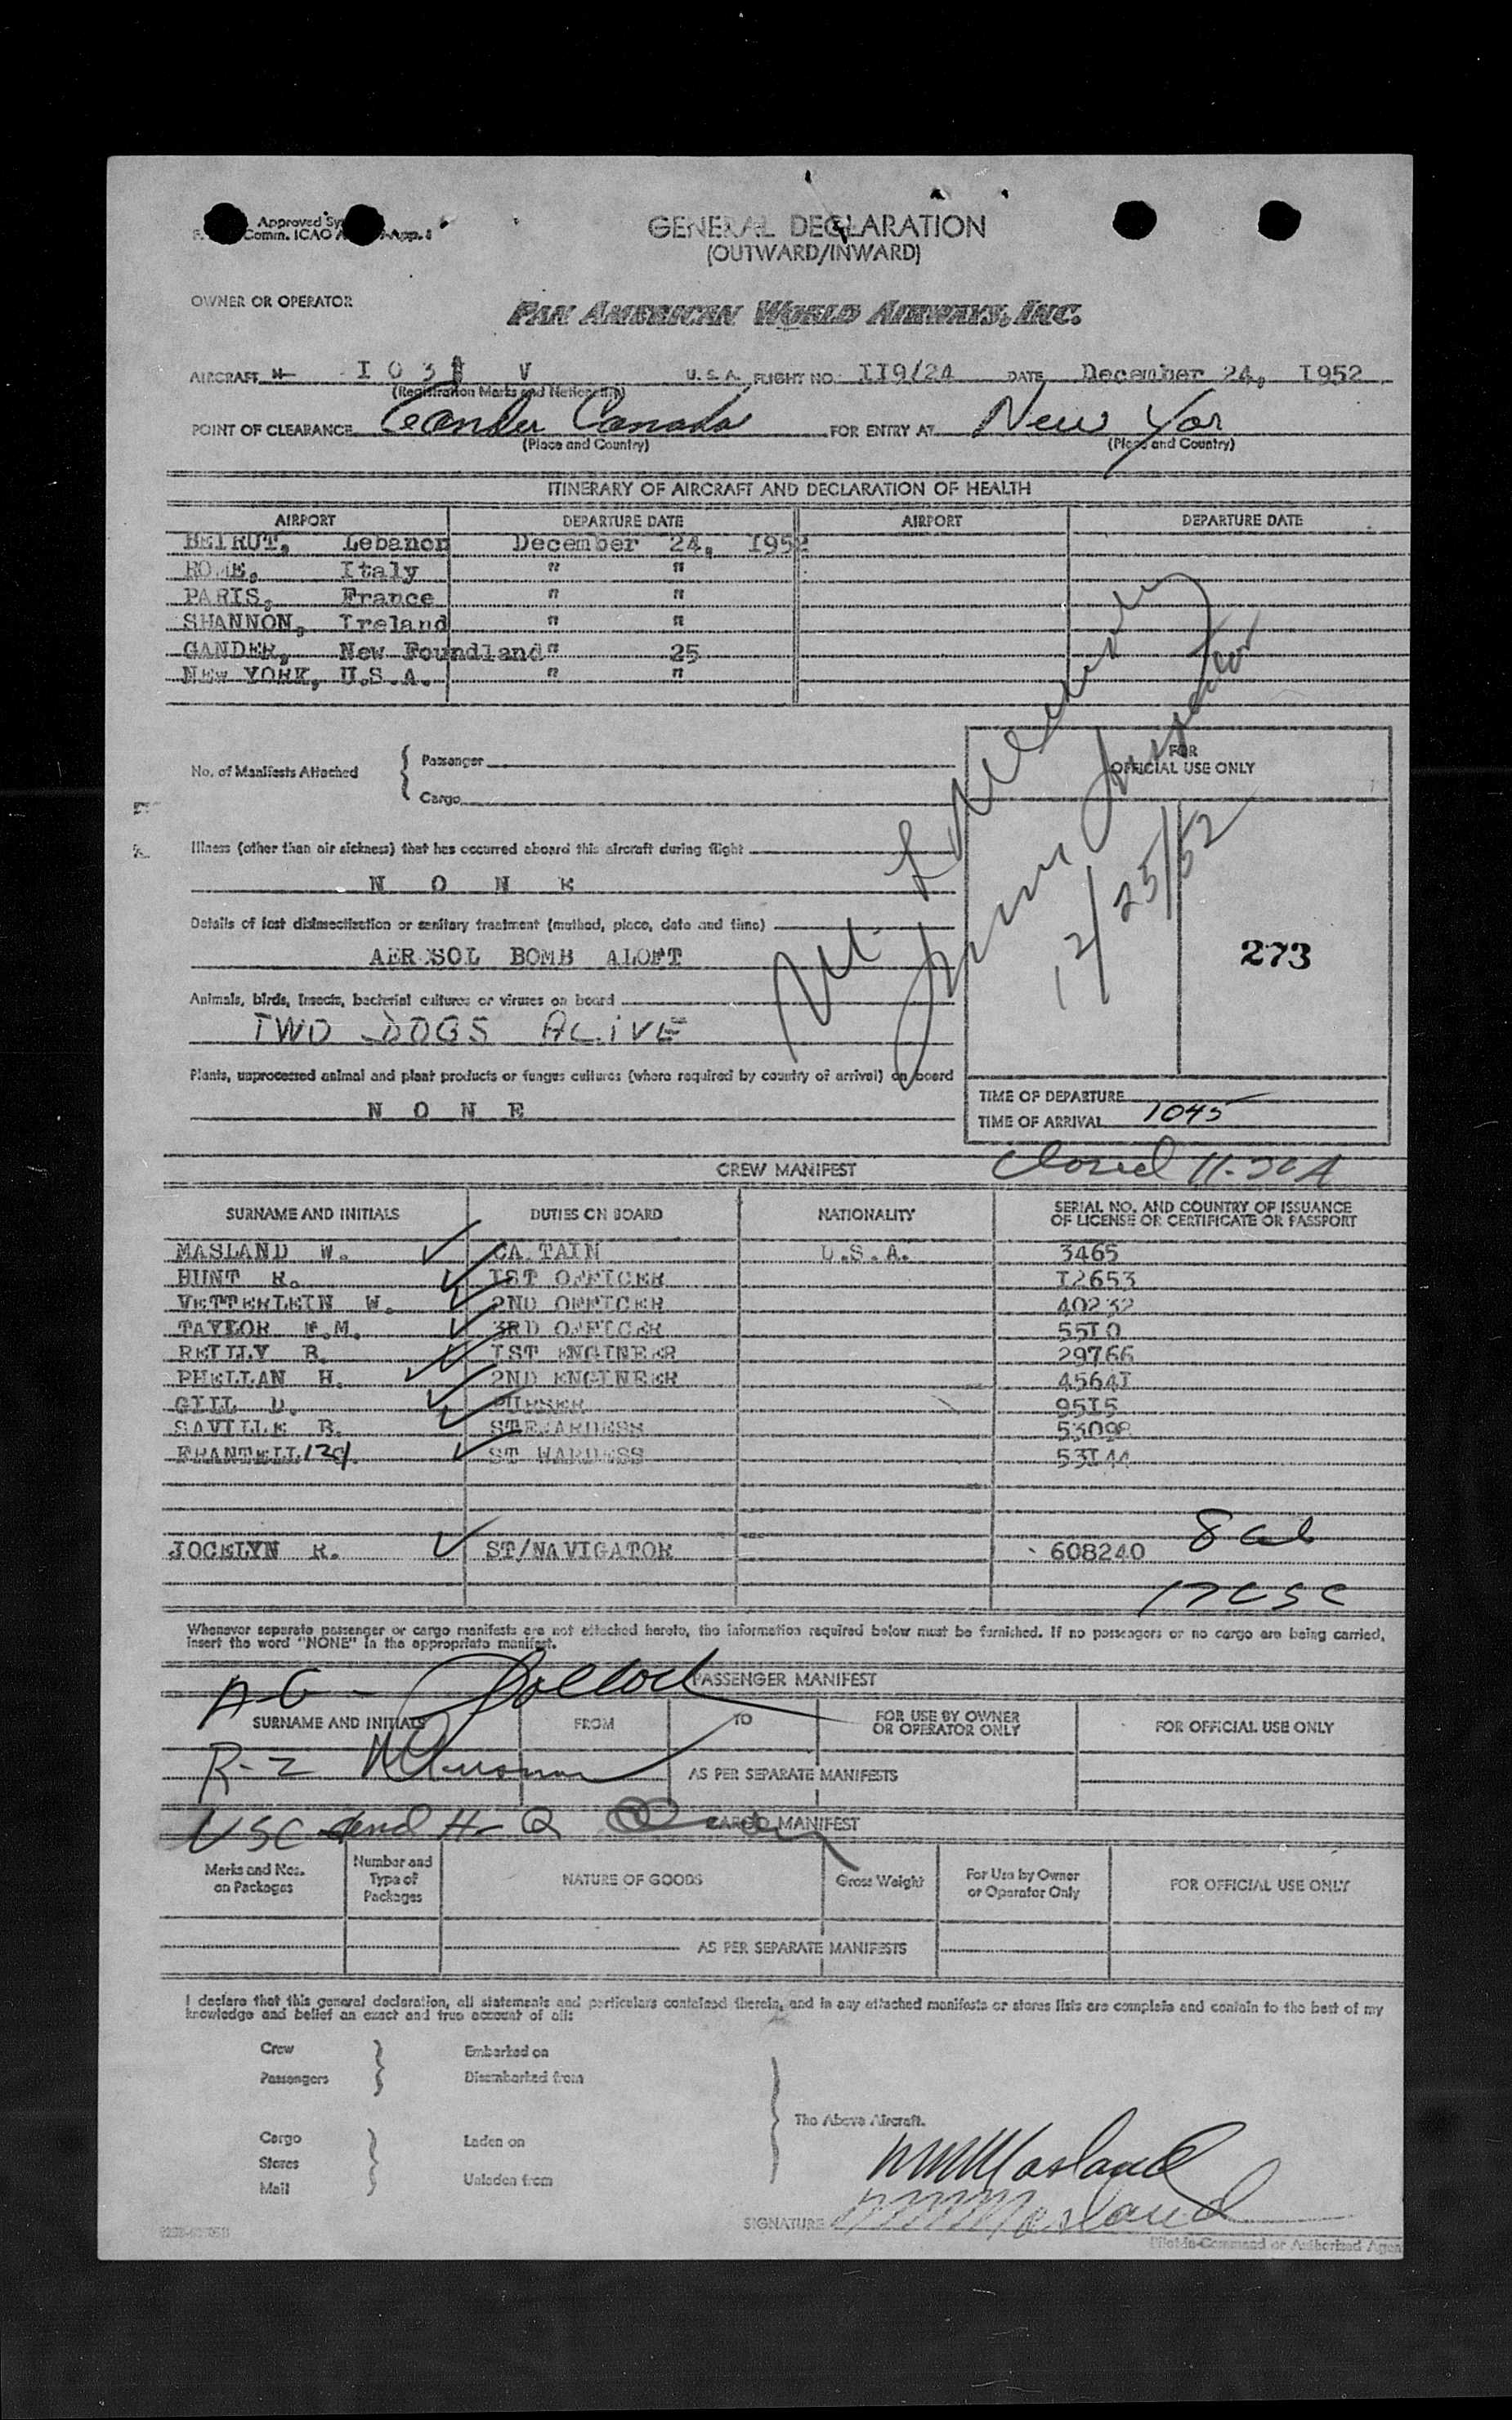 Approved
Comm. ICAO
App. 1
GENERAL DECLARATION
(OUTWARD/INWARD)
OWNER OR OPERATOR
PAN AMERICAN WORLD AIRWAYS, INC.
AIRCRAFT N I 0 3 V U. S. A. FLIGHT NO. II9/24 DATE December 24, I952
(Registration Marks and Nationality)
POINT OF CLEARANCE Gander Canada FOR ENTRY AT New Yor
(Place and Country) (Place and Country)
ITINERARY OF AIRCRAFT AND DECLARATION OF HEALTH
AIRPORT DEPARTURE DATE AIRPORT DEPARTURE DATE
BEIRUT, Lebanon December 24, I952
ROME, Italy " "
PARIS, France " "
SHANNON, Ireland " "
GANDER, New Foundland " 25
NEW YORK, U.S.A. " "
No. of Manifests Attached { Passenger
Cargo
FOR
OFFICIAL USE ONLY
Illness (other than air sickness) that has occurred aboard this aircraft during flight
N O N E
Details of last disinsectization or sanitary treatment (method, place, date and time)
AEROSOL BOMB ALOFT
Animals, birds, insects, bacterial cultures or viruses on board
TWO DOGS ALIVE
Plants, unprocessed animal and plant products or fungus cultures (where required by country of arrival) on board
N O N E
Inspector
12/25/52
273
TIME OF DEPARTURE
TIME OF ARRIVAL 1045
CREW MANIFEST
Closed
SURNAME AND INITIALS DUTIES ON BOARD NATIONALITY SERIAL NO. AND COUNTRY OF ISSUANCE
OF LICENSE OR CERTIFICATE OR PASSPORT
MASLAND W. ✓ CA TAIN U.S.A. 3465
HUNT R. ✓ IST OFFICER I2653
VETTERLEIN W. ✓ 2ND OFFICER 40232
TAYLOR W.M. ✓ 3RD OFFICER 55I0
REILLY B. ✓ IST ENGINEER 29766
PHELLAN H. ✓ 2ND ENGINEER 4564I
GILL D. ✓ PURSER 95I5
SAVILLE B. ✓ STEWARDESS 53098
FRANTELL ✓ ST WARDESS 53I44
JOCELYN R. ✓ ST/NAVIGATOR 608240
8 Cal
17 CSC
Whenever separate passenger or cargo manifests are not attached hereto, the information required below must be furnished. If no passengers or no cargo are being carried,
insert the word "NONE" in the appropriate manifest.
PASSENGER MANIFEST
SURNAME AND INITIALS FROM TO FOR USE BY OWNER
OR OPERATOR ONLY FOR OFFICIAL USE ONLY
AS PER SEPARATE MANIFESTS
CARGO MANIFEST
Marks and Nos.
on Packages Number and
Type of
Packages NATURE OF GOODS Gross Weight For Use by Owner
or Operator Only FOR OFFICIAL USE ONLY
AS PER SEPARATE MANIFESTS
I declare that this general declaration, all statements and particulars contained therein, and in any attached manifests or stores lists are complete and contain to the best of my
knowledge and belief an exact and true account of all:
Crew Embarked on
Passengers Disembarked from
The Above Aircraft.
Cargo Laden on
Stores
Mail Unladen from
WM Masland
SIGNATURE WM Masland
Pilot-in-Command or Authorized Agent